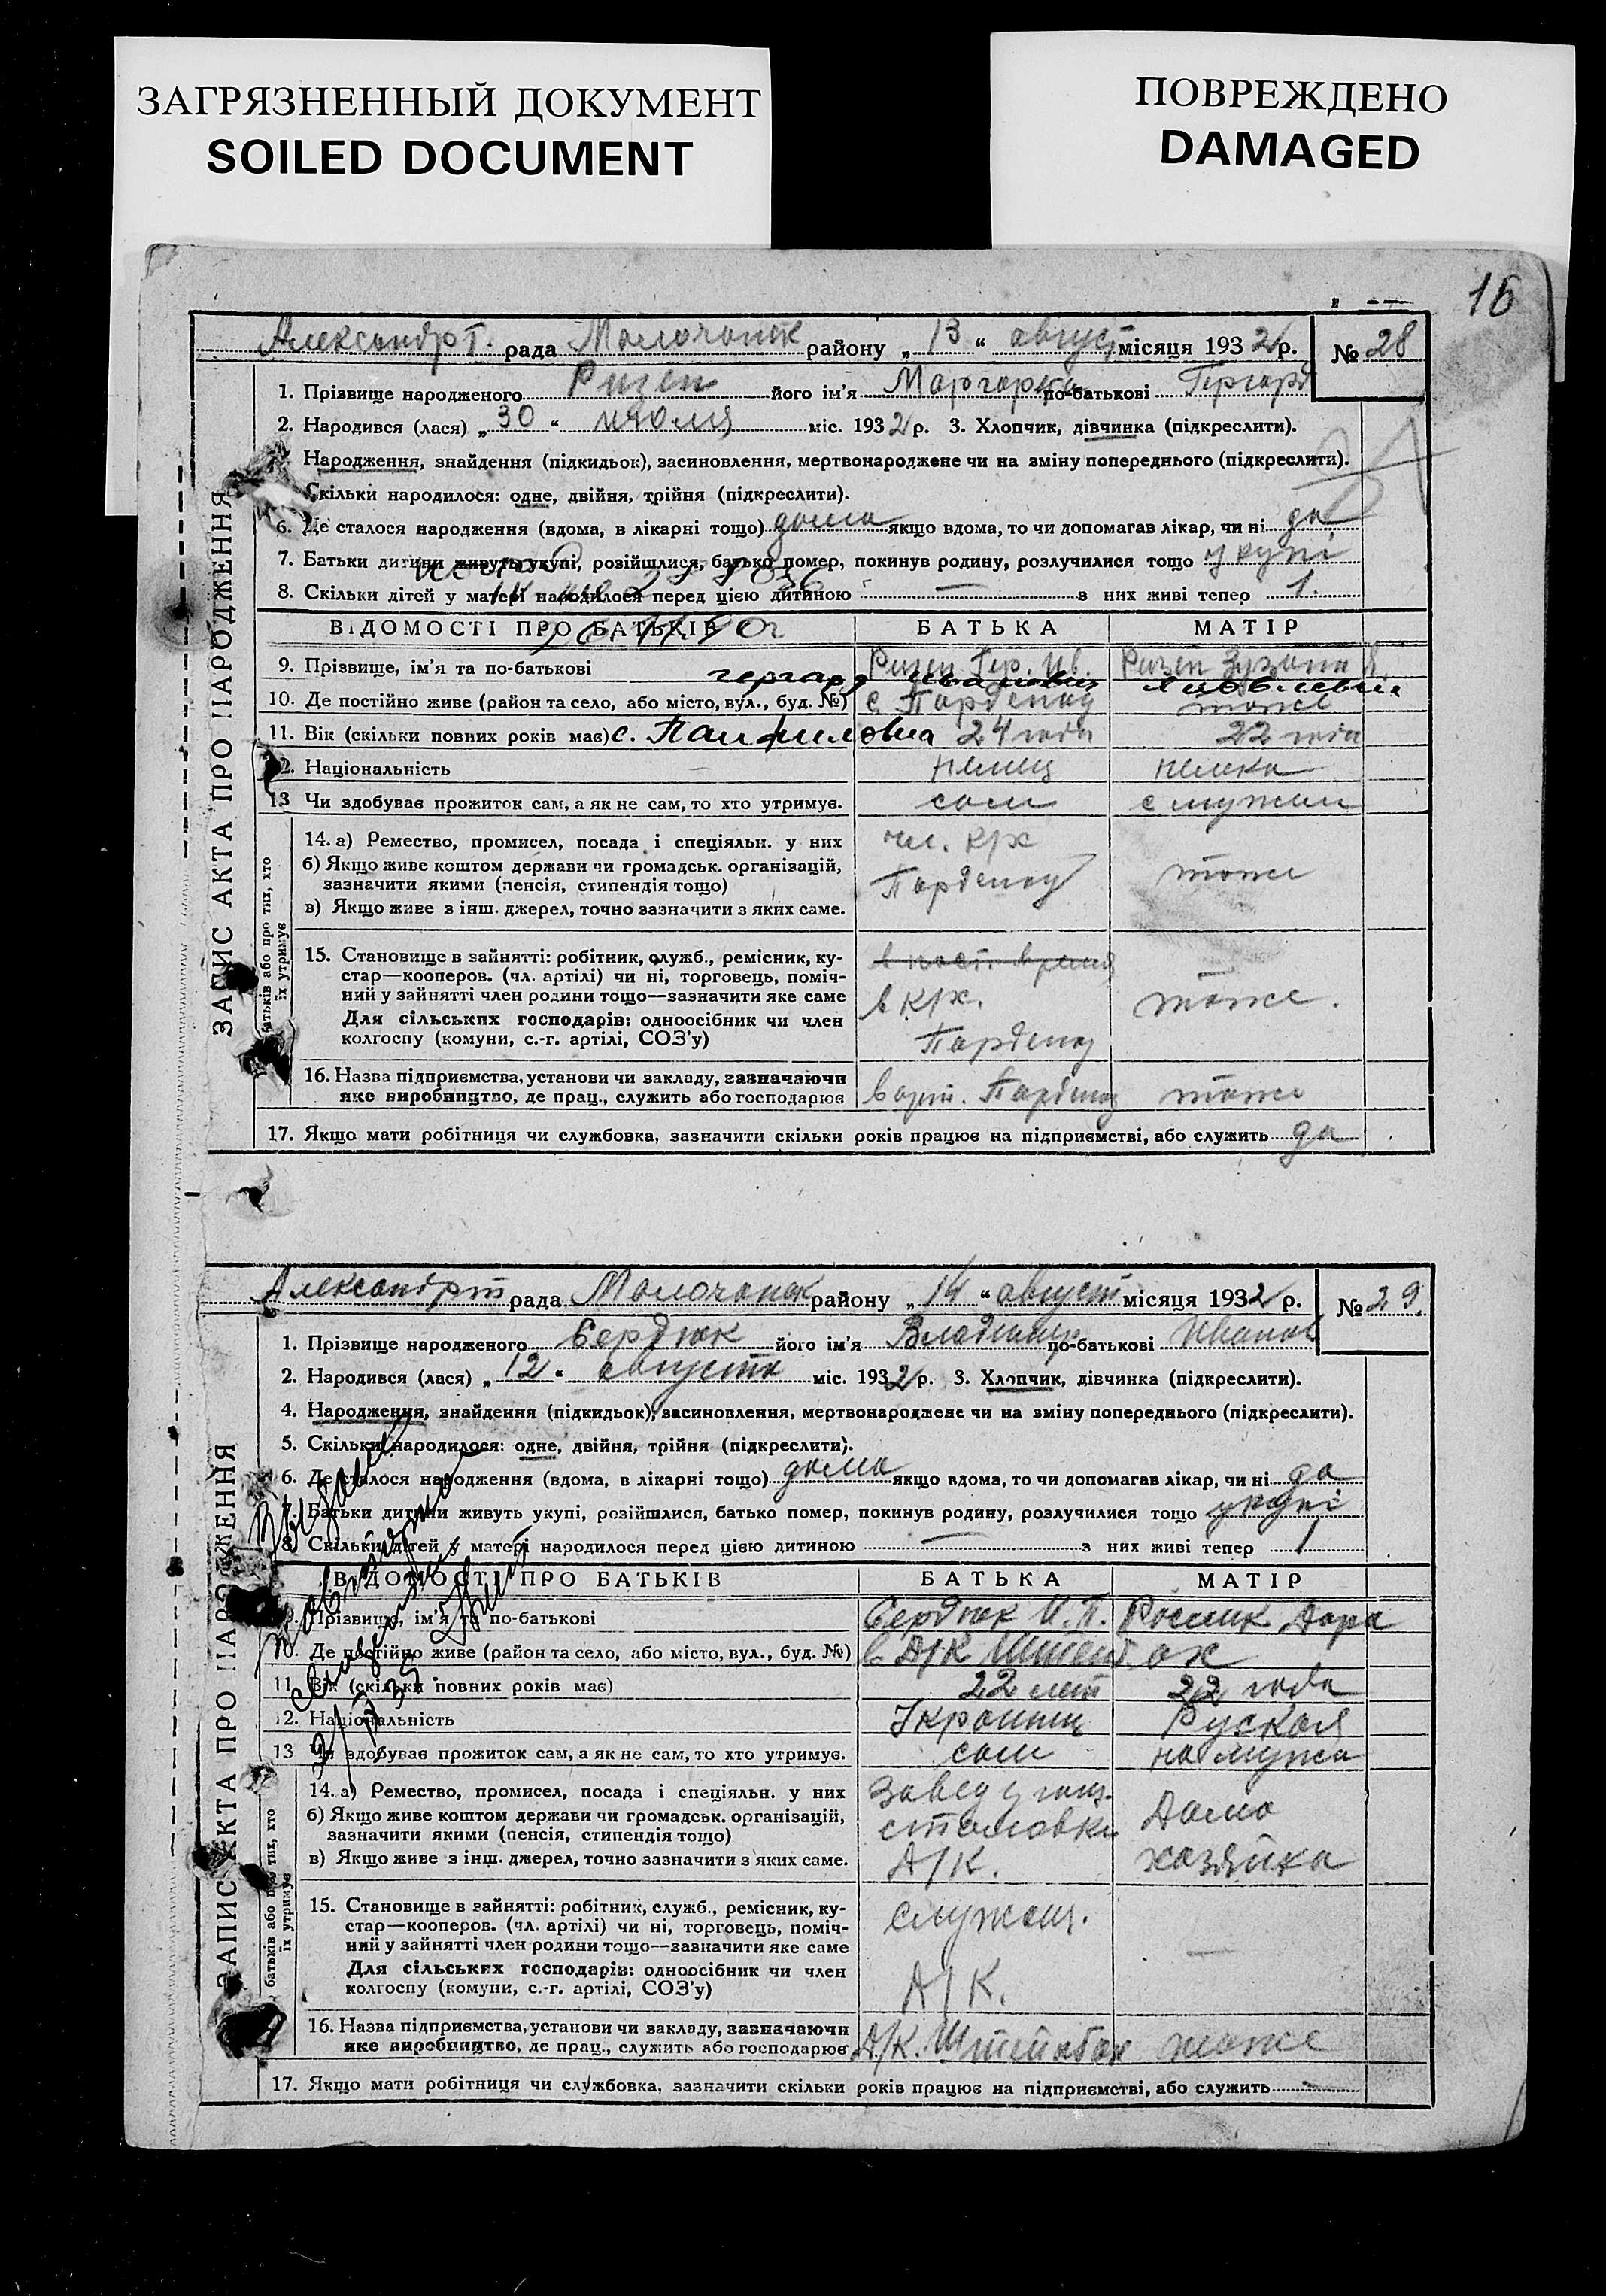 ЗАГРЯЗНЕННЫЙ ДОКУМЕНТ
SOILED DOCUMENT
ПОВРЕЖДЕНО
DAMAGED
16
Александрт. рада Молочанск району „13“ август місяця 1932 р. № 28
ЗАПИС АКТА ПРО НАРОДЖЕННЯ
1. Прізвище народженого Ризен його ім'я Маргарита по-батькові Гергард
2. Народився (лася) „30“ июля міс. 1932 р. 3. Хлопчик, дівчинка (підкреслити).
Народження, знайдення (підкидьок), засиновлення, мертвонароджене чи на зміну попереднього (підкреслити).
Скільки народилося: одне, двійня, трійня (підкреслити).
6. Де сталося народження (вдома, в лікарні тощо) дома якщо вдома, то чи допомагав лікар, чи ні да
7. Батьки дитини живуть укупі, розійшлися, батько помер, покинув родину, розлучилися тощо укупі
8. Скільки дітей у матері народилося перед цією дитиною — з них живі тепер 1.
ВІДОМОСТІ ПРО БАТЬКІВ БАТЬКА МАТІР
9. Прізвище, ім'я та по-батькові Ризен Гер. Ив. Ризен Зузана Я
гергард иванович Яковлевна
10. Де постійно живе (район та село, або місто, вул., буд. №) с. Парденау тоже
11. Вік (скільки повних років має) с. Панфиловка 24 года 22 года
12. Національність немец немка
13 Чи здобував прожиток сам, а як не сам, то хто утримує. сам с мужем
батьків або про тих, хто їх утримує
14. а) Ремество, промисел, посада і спеціяльн. у них чл. к/х
б) Якщо живе коштом держави чи громадськ. організацій,
зазначити якими (пенсія, стипендія тощо) Парденау тоже
в) Якщо живе з інш. джерел, точно зазначити з яких саме.
15. Становище в зайнятті: робітник, служб., ремісник, ку-
стар—кооперов. (чл. артілі) чи ні, торговець, поміч-
ний у зайнятті член родини тощо—зазначити яке саме в к/х. тоже.
Для сільських господарів: одноосібник чи член
колгоспу (комуни, с.-г. артілі, СОЗ'у) Парденау
16. Назва підприємства, установи чи закладу, зазначаючи
яке виробництво, де прац., служить або господарює в арт. Парденау тоже
17. Якщо мати робітниця чи службовка, зазначити скільки років працює на підприємстві, або служить да
Александрт рада Молочанск району „14“ август місяця 1932 р. № 29.
ЗАПИС АКТА ПРО НАРОДЖЕННЯ
1. Прізвище народженого Сердюк його ім'я Владимир по-батькові Иванов
2. Народився (лася) „12“ августа міс. 1932 р. 3. Хлопчик, дівчинка (підкреслити).
4. Народження, знайдення (підкидьок), засиновлення, мертвонароджене чи на зміну попереднього (підкреслити).
5. Скільки народилося: одне, двійня, трійня (підкреслити).
6. Де сталося народження (вдома, в лікарні тощо) дома якщо вдома, то чи допомагав лікар, чи ні да
7. Батьки дитини живуть укупі, розійшлися, батько помер, покинув родину, розлучилися тощо укупі
8. Скільки дітей у матері народилося перед цією дитиною — з них живі тепер 1
ВІДОМОСТІ ПРО БАТЬКІВ БАТЬКА МАТІР
9. Прізвище, ім'я та по-батькові Сердюк И. П. Дора
10. Де постійно живе (район та село, або місто, вул., буд. №) в А/К
11. Вік (скільки повних років має) 22 лет 22 года
12. Національність Украинец Руская
13 Чи здобував прожиток сам, а як не сам, то хто утримує. сам на мужа
батьків або про тих, хто їх утримує
14. а) Ремество, промисел, посада і спеціяльн. у них
б) Якщо живе коштом держави чи громадськ. організацій, столовки Дама
зазначити якими (пенсія, стипендія тощо)
в) Якщо живе з інш. джерел, точно зазначити з яких саме. А/К. хозяйка
15. Становище в зайнятті: робітник, служб., ремісник, ку- служащ.
стар—кооперов. (чл. артілі) чи ні, торговець, поміч-
ний у зайнятті член родини тощо—зазначити яке саме —
Для сільських господарів: одноосібник чи член
колгоспу (комуни, с.-г. артілі, СОЗ'у) А/К.
16. Назва підприємства, установи чи закладу, зазначаючи
яке виробництво, де прац., служить або господарює А/К. тоже
17. Якщо мати робітниця чи службовка, зазначити скільки років працює на підприємстві, або служить -